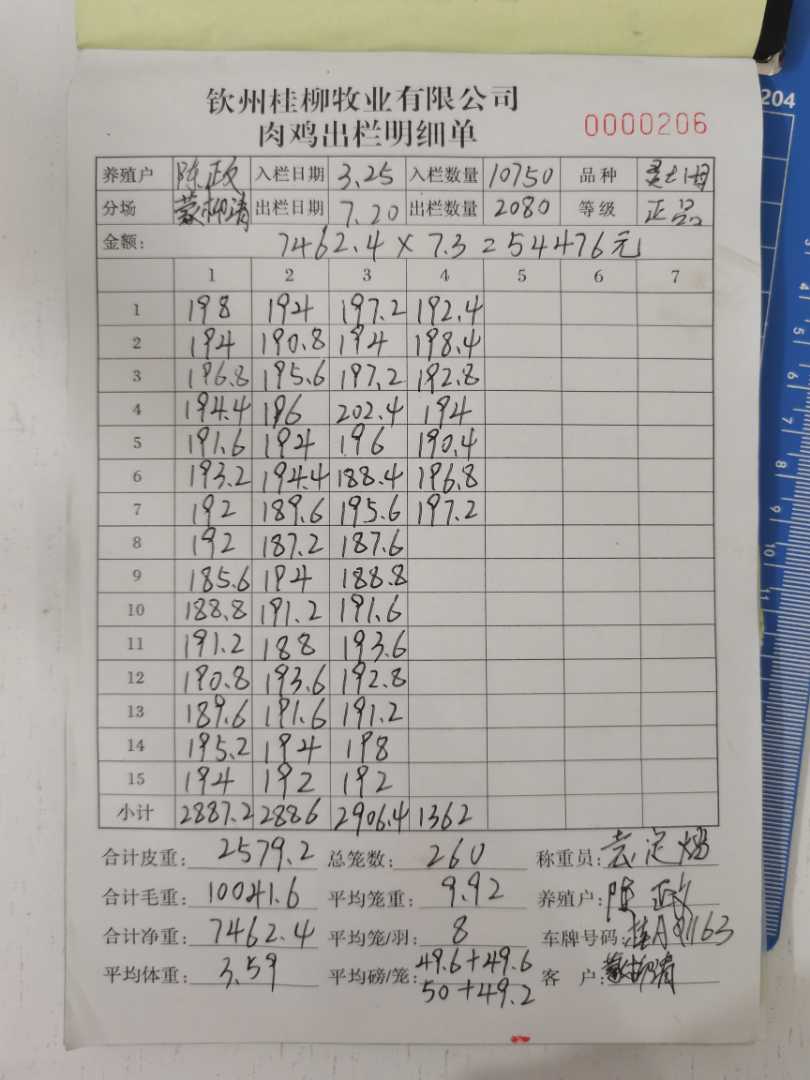 204
钦州桂柳牧业有限公司
肉鸡出栏明细单 0000206
养殖户 陈政 入栏日期 3.25 入栏数量 10750 品种
分场 蒙柳清 出栏日期 7.20 出栏数量 2080 等级 正品
金额: 7462.4 × 7.3 = 54476元
1 2 3 4 5 6 7
1 198 194 197.2 192.4
2 194 190.8 194 198.4
3 196.8 195.6 197.2 192.8
4 194.4 196 202.4 194
5 191.6 194 196 190.4
6 193.2 194.4 188.4 196.8
7 192 189.6 195.6 197.2
8 192 187.2 187.6
9 185.6 194 188.8
10 188.8 191.2 191.6
11 191.2 188 193.6
12 190.8 193.6 192.8
13 189.6 191.6 191.2
14 195.2 194 198
15 194 192 192
小计 2887.2 2886 2906.4 1362
合计皮重: 2579.2 总笼数: 260 称重员:
合计毛重: 10041.6 平均笼重: 9.92 养殖户: 陈政
合计净重: 7462.4 平均笼/羽: 8 车牌号码: 桂A91163
平均体重: 3.59 平均磅/笼: 49.6+49.6 客 户: 蒙柳清
50+49.2